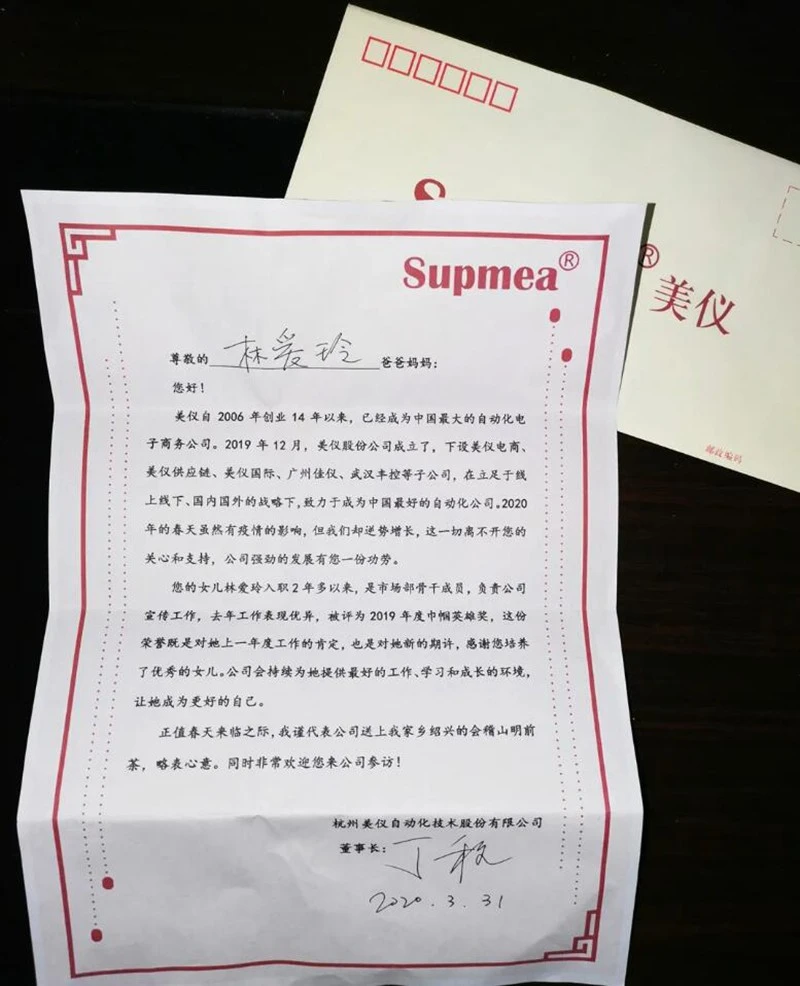 Supmea®
® 美仪
邮政编码
尊敬的 林爱玲 爸爸妈妈：
您好！
美仪自 2006 年创业 14 年以来，已经成为中国最大的自动化电
子商务公司。2019 年 12 月，美仪股份公司成立了，下设美仪电商、
美仪供应链、美仪国际、广州佳仪、武汉丰控等子公司，在立足于线
上线下、国内国外的战略下，致力于成为中国最好的自动化公司。2020
年的春天虽然有疫情的影响，但我们却逆势增长，这一切离不开您的
关心和支持，公司强劲的发展有您一份功劳。
您的女儿林爱玲入职 2 年多以来，是市场部骨干成员，负责公司
宣传工作，去年工作表现优异，被评为 2019 年度巾帼英雄奖，这份
荣誉既是对她上一年度工作的肯定，也是对她新的期许，感谢您培养
了优秀的女儿。公司会持续为她提供最好的工作、学习和成长的环境，
让她成为更好的自己。
正值春天来临之际，我谨代表公司送上我家乡绍兴的会稽山明前
茶，略表心意。同时非常欢迎您来公司参访！
杭州美仪自动化技术股份有限公司
董事长：丁
2020.3.31